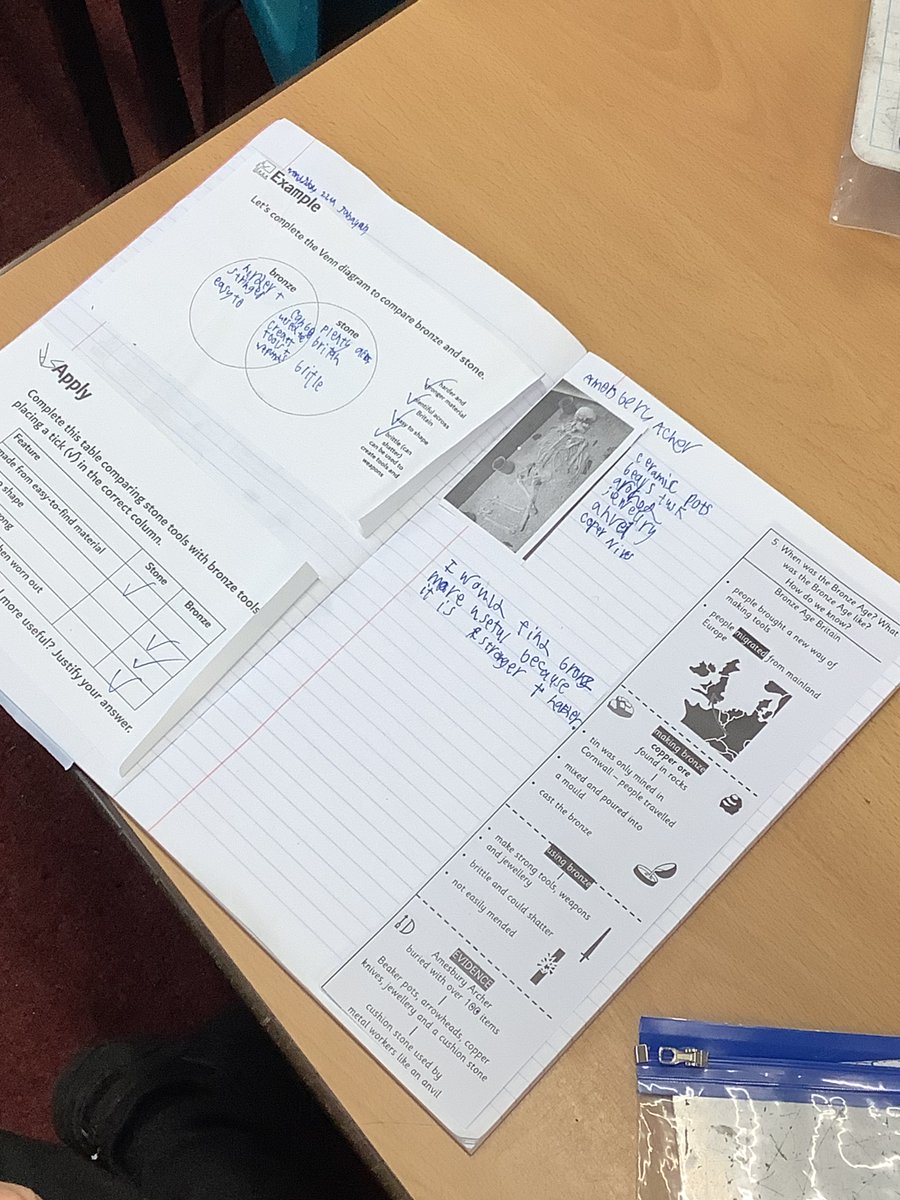 Example
Let's complete the Venn diagram to compare bronze and stone.
bronze
harder +
stronger
easy to
stone
plenty
tools +
britle
harder and
stronger material
plentiful across
Britain
easy to shape
brittle (can
shatter)
can be used to
create tools and
weapons
Apply
Complete this table comparing stone tools with bronze tools
placing a tick (√) in the correct column.
Feature
Stone
Bronze
made from easy-to-find material
shape
when worn out
more useful? Justify your answer.
Acher
ceramic pots
jewellry
I would find bronze
more useful because
it is stronger +
5. When was the Bronze Age? What
was the Bronze Age like?
How do we know?
Bronze Age Britain
• people brought a new way of
making tools
• people migrated from mainland
Europe
making bronze
copper ore
found in rocks
• tin was only mined in
Cornwall – people travelled
• mixed and poured into
a mould
• cast the bronze
using bronze
• make strong tools, weapons
and jewellery
• brittle and could shatter
• not easily mended
EVIDENCE
Amesbury Archer
buried with over 100 items
Beaker pots, arrowheads, copper
knives, jewellery and a cushion stone
cushion stone used by
metal workers like an anvil